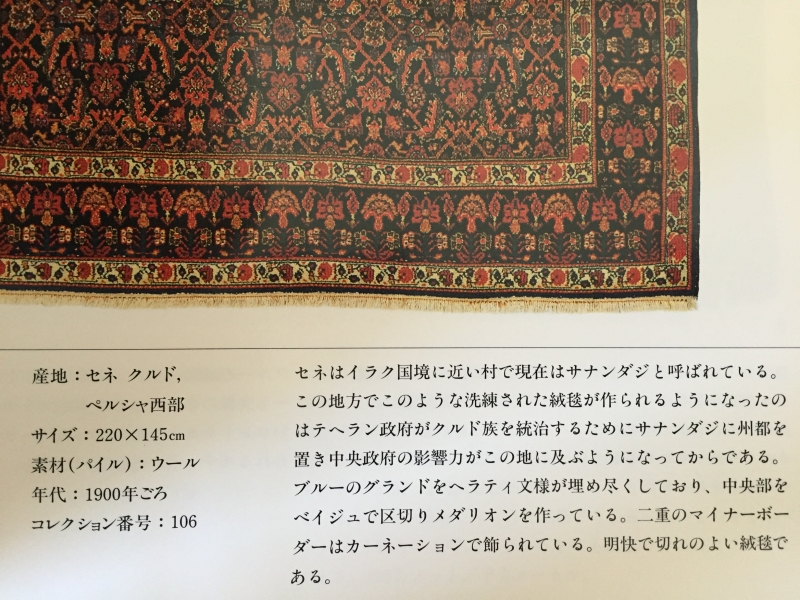 産地：セネ クルド,
ペルシャ西部
サイズ：220×145cm
素材(パイル)：ウール
年代：1900年ごろ
コレクション番号：106
セネはイラク国境に近い村で現在はサナンダジと呼ばれている。
この地方でこのような洗練された絨毯が作られるようになったの
はテヘラン政府がクルド族を統治するためにサナンダジに州都を
置き中央政府の影響力がこの地に及ぶようになってからである。
ブルーのグランドをヘラティ文様が埋め尽くしており、中央部を
ベイジュで区切りメダリオンを作っている。二重のマイナーボー
ダーはカーネーションで飾られている。明快で切れのよい絨毯で
ある。